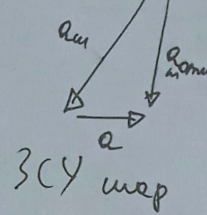 aш
aотн
a
ЗСУ шар